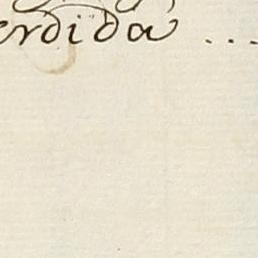 erdida ...